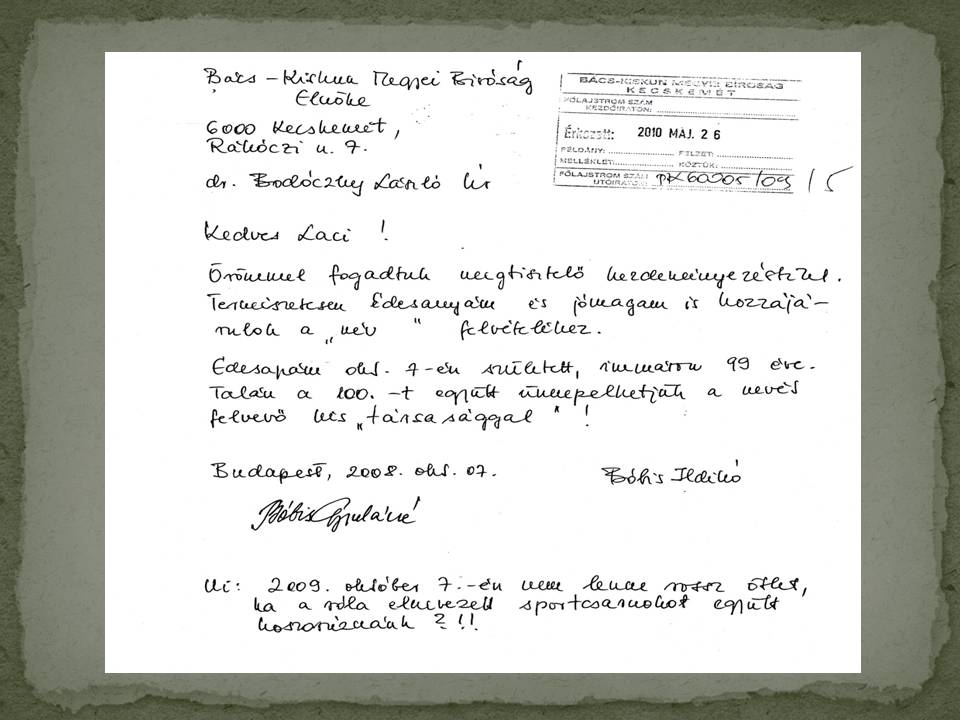 Bács-Kiskun Megyei Bíróság
Elnöke
6000 Kecskemét,
Rákóczi u. 7.
dr. Bodóczky László Úr
BÁCS-KISKUN MEGYEI BÍRÓSÁG
KECSKEMÉT
FŐLAJSTROM SZÁM
KEZDŐIRATON:
Érkezett: 2010 MÁJ. 26
PÉLDÁNY: FELZET:
MELLÉKLET: KÖZTÜK:
FŐLAJSTROM SZÁM
UTÓIRATON: Pk 60905/09/5
Kedves Laci !
Örömmel fogadtuk megtisztelő kezdeményezésüket.
Természetesen Édesanyám és jómagam is hozzájá-
rulok a „név" felvételéhez.
Édesapám okt. 7-én született, immáron 99 éve.
Talán a 100.-t együtt ünnepelhetjük a nevét
felvevő kis „társasággal" !
Budapest, 2008. okt. 07.
Bóbis Ildikó
Bóbis Gyuláné
Ui: 2009. október 7.-én nem lenne rossz ötlet,
ha a róla elnevezett sportcsarnokot együtt
koszorúznánk ?!!